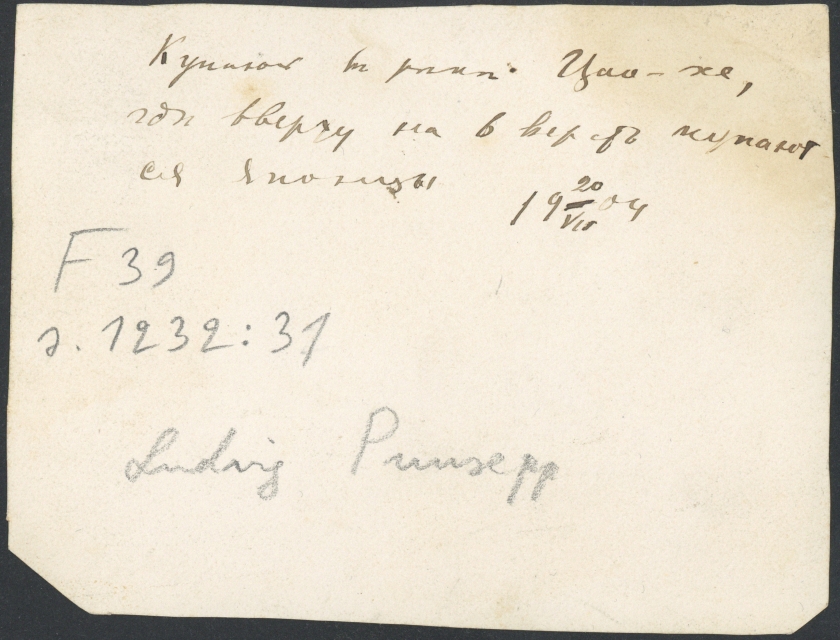 Купаюсь въ рѣкѣ Цао-хе,
гдѣ вверху на 6 верстъ купают
ся японцы
19 20/VII 04
F 39
s. 1232:31
Ludvig Puusepp